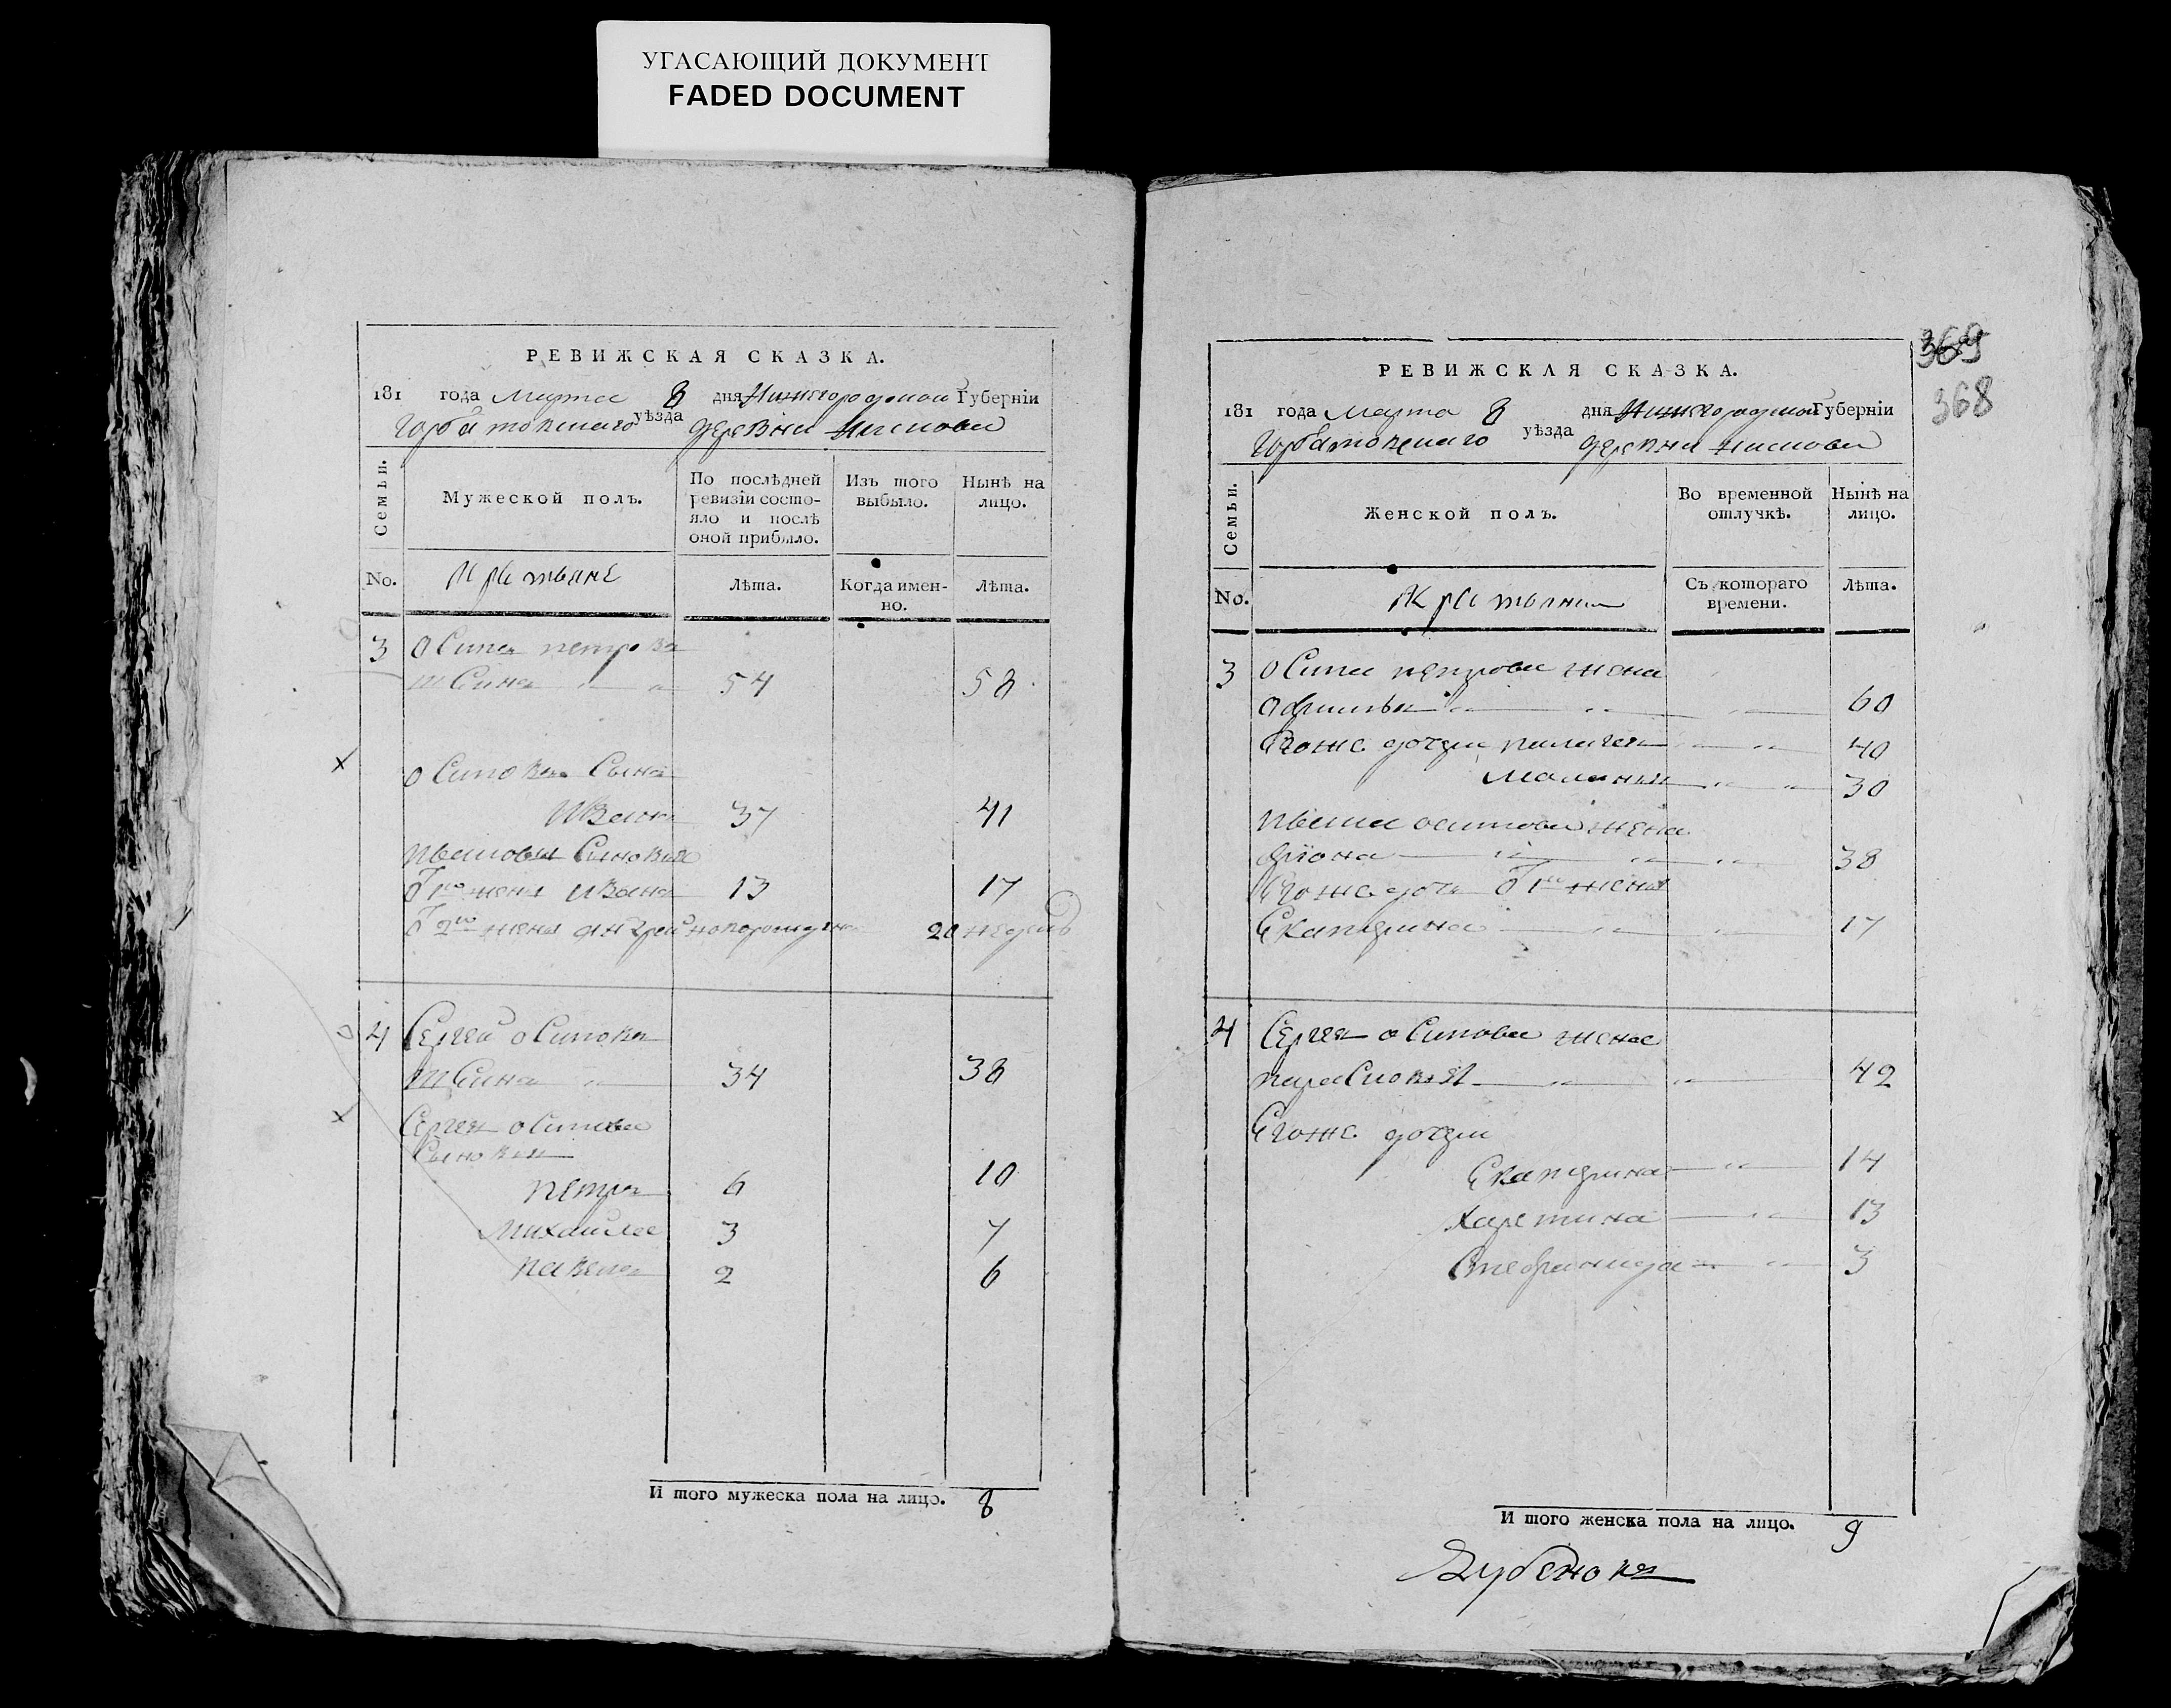 УГАСАЮЩИЙ ДОКУМЕНТ
FADED DOCUMENT
РЕВИЖСКАЯ СКАЗКА.
181 года марта 8 дня Нижегородской Губерніи
Горбатовскаго уѣзда деревни
Семьи.
Мужеской полъ.
По послѣдней ревизіи состояло и послѣ оной прибыло.
Изъ того выбыло.
Нынѣ на лицо.
No.
крестьяне
Лѣта.
Когда именно.
Лѣта.
3 осипъ петровъ
54 58
осиповъ сынъ
иванъ 37 41
ивановы сыновья
от 1й жены иванъ 13 17
от 2й жены андрей новорожден 20 недель
4 Сергей осиповъ
34 38
Сергея осипова
сыновья
петръ 6 10
михайла 3 7
павелъ 2 6
И того мужеска пола на лицо. 8
РЕВИЖСКАЯ СКАЗКА.
369
368
181 года марта 8 дня Нижегородской Губерніи
Горбатовскаго уѣзда деревни
Семьи.
Женской полъ.
Во временной отлучкѣ.
Нынѣ на лицо.
No.
Съ котораго времени.
Лѣта.
3 осипа петрова жена
60
Егоже дочери пелагея 40
маланья 30
ивана осипова жена
38
Егоже дочь от 1й жены
Екатерина 17
4 Сергея осипова жена
парасковья 42
Егоже дочери
Екатерина 14
харетина 13
Стефанида 3
И того женска пола на лицо. 9